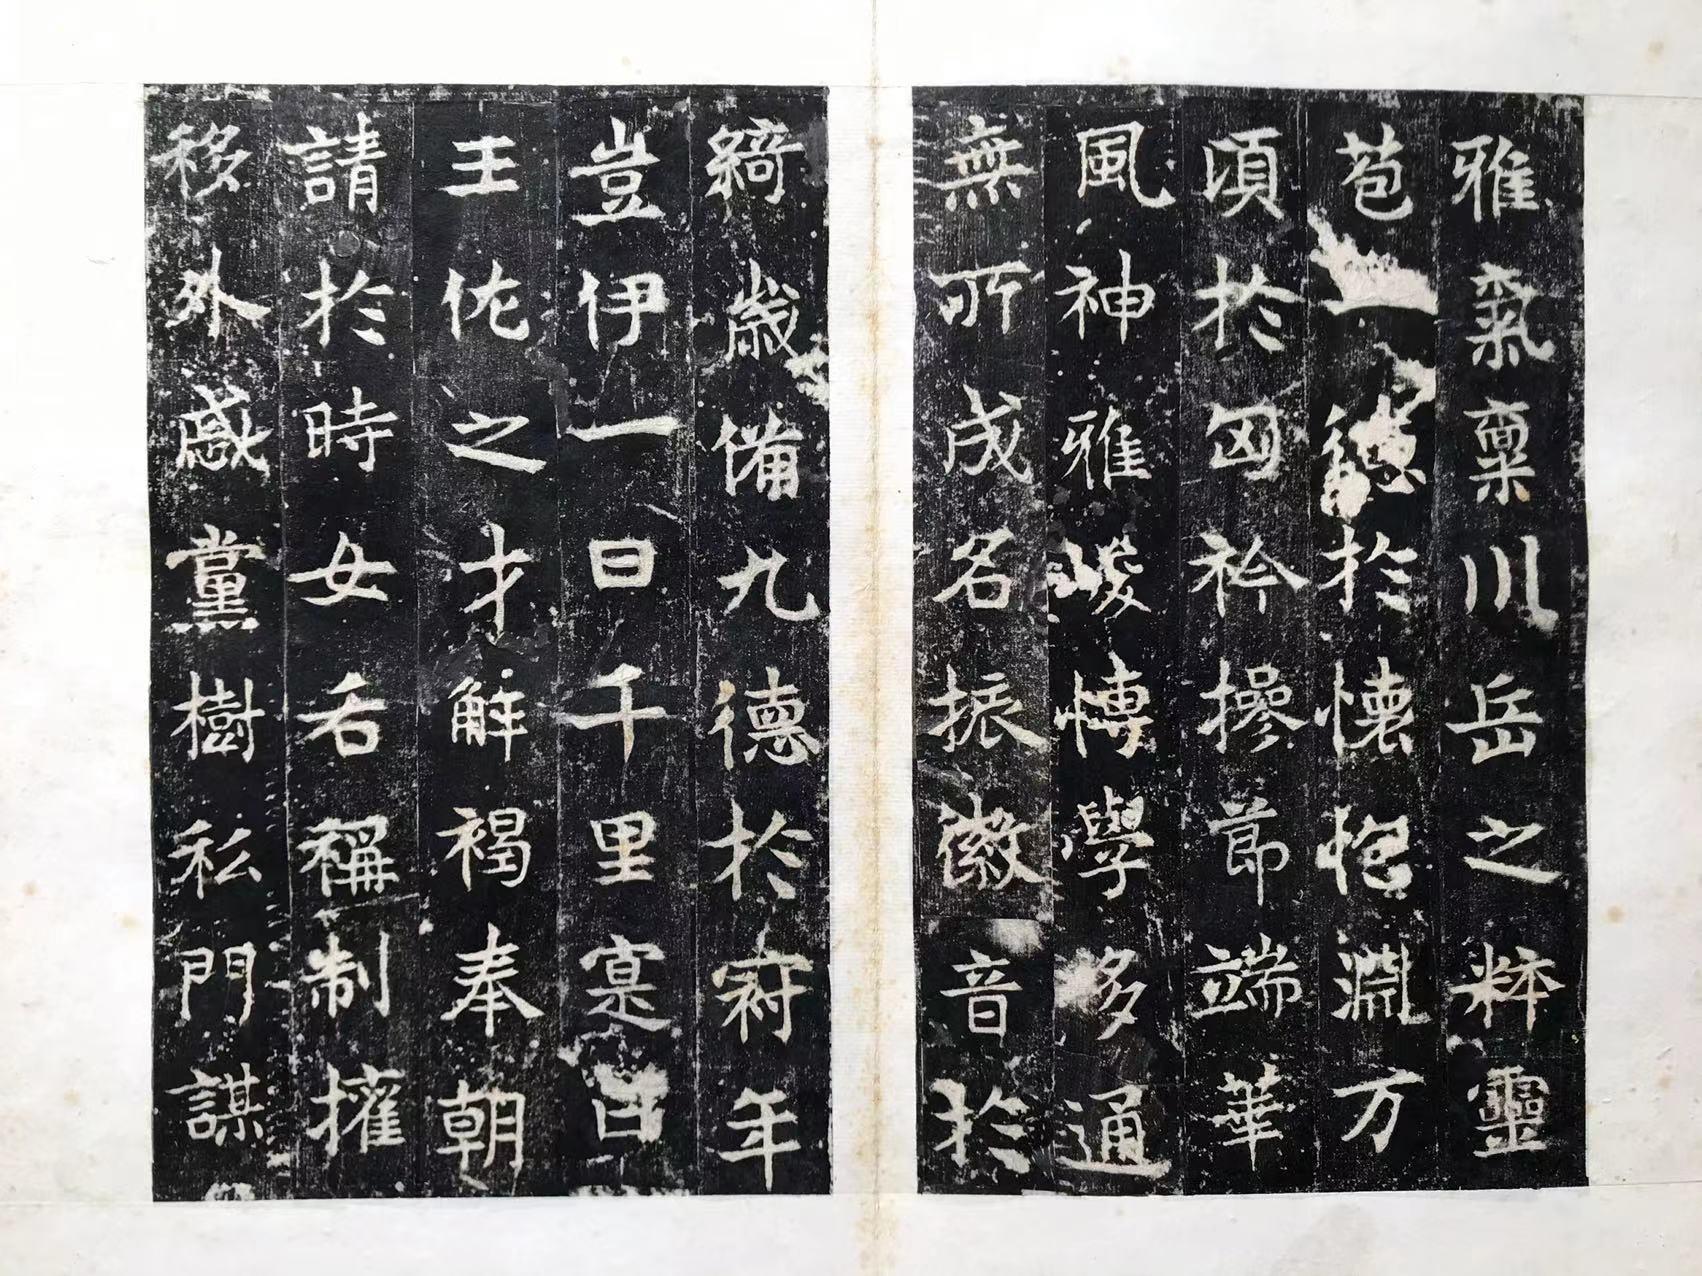 雅氣稟川岳之粹靈
苞一德於懷抱淵万
頃於匈衿操節端華
風神雅峻博學多通
無所成名振徽音於
綺歲備九德於冠年
豈伊一日千里寔曰
王佐之才解褐奉朝
請於時女后稱制權
移外戚黨樹私門謀